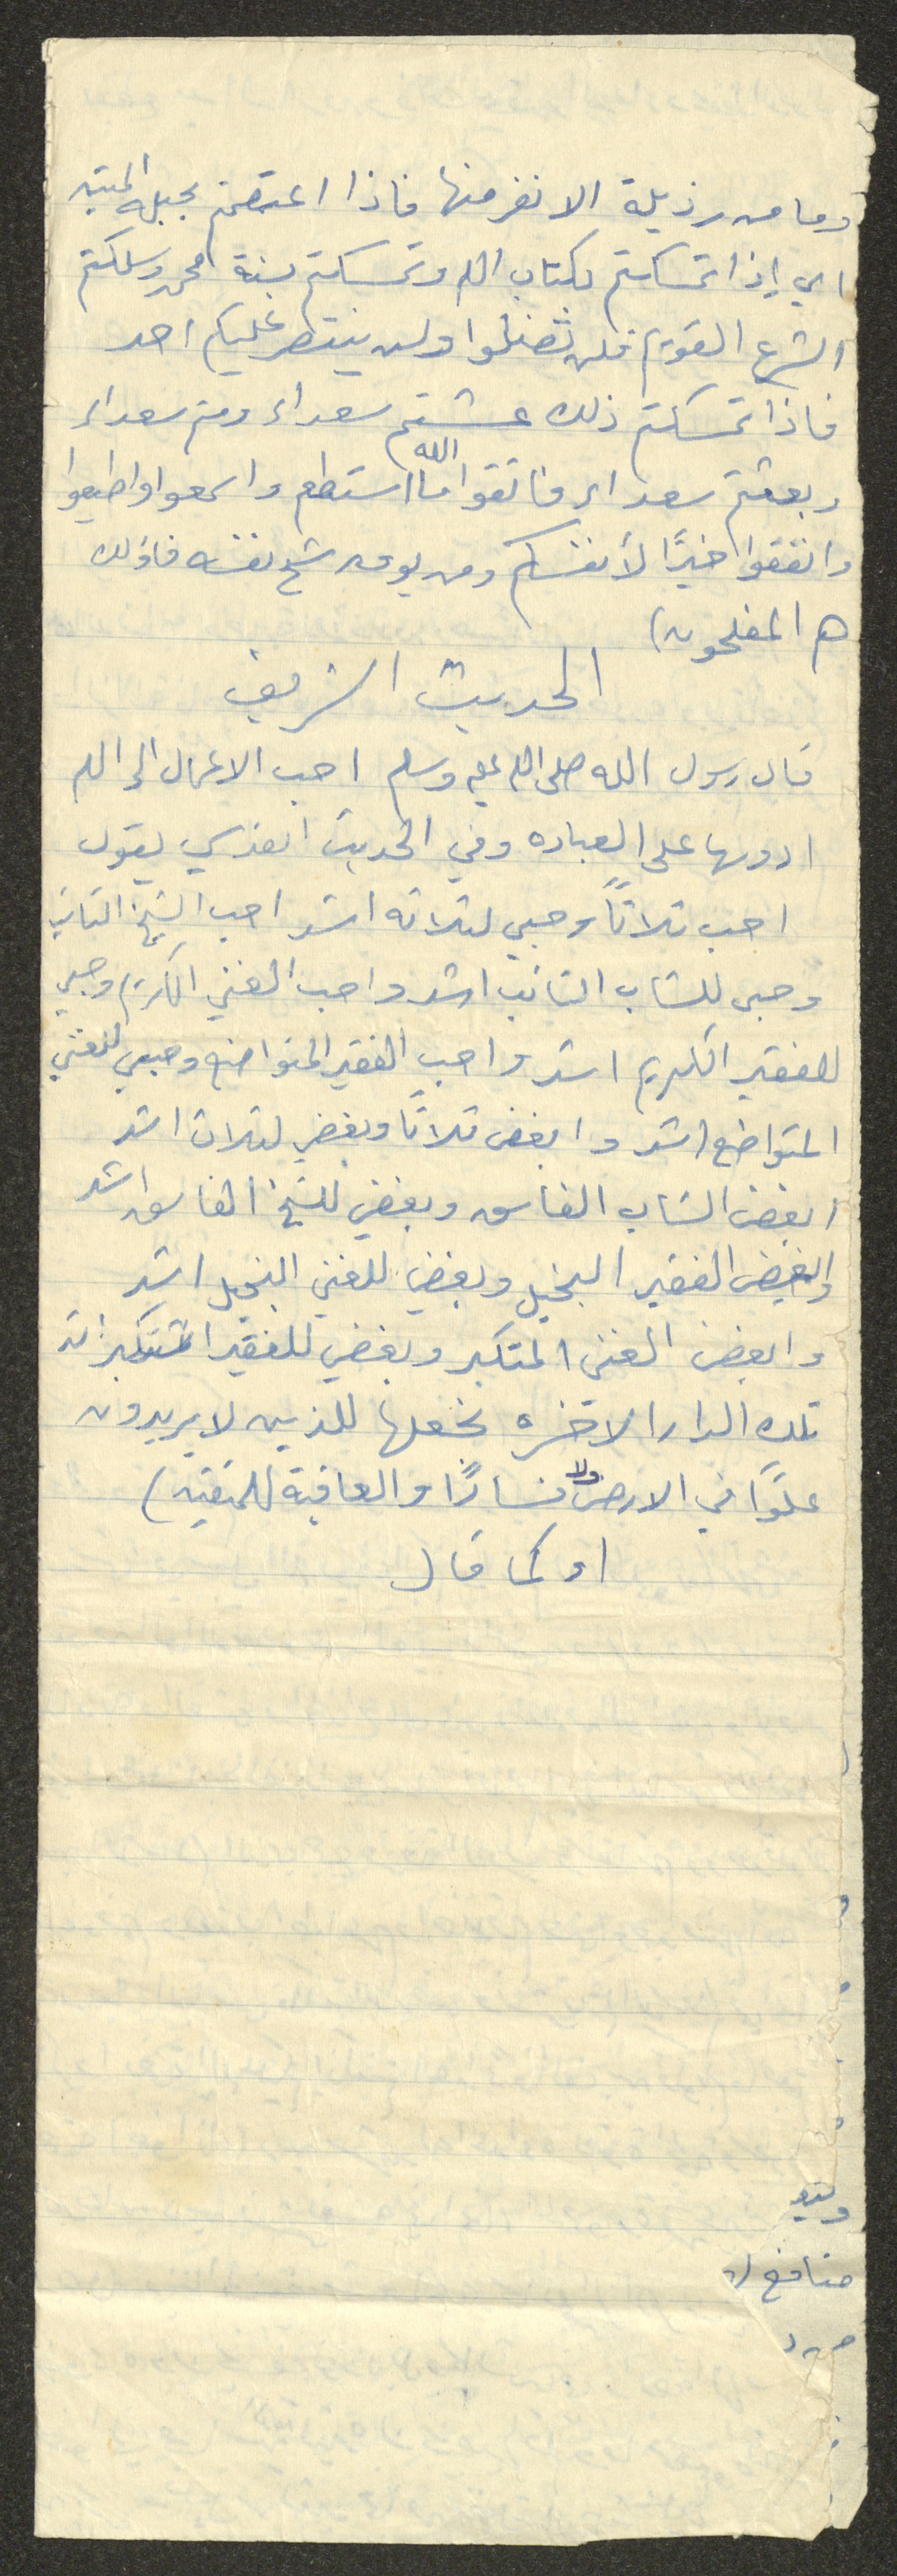 وما من رذيلة الا نفر منها فاذا اعتصمتم بحبله المتين
اي إذا تمسكتم بكتاب الله وتمسكتم بسنة محمد وسلكتم
الشرع القويم فلن تضلوا ولن ينتصر عليكم احد
فاذا تمسكتم ذلك عشتم سعداء ومتم سعداء
وبعثتم سعداء فاتقوا الله ما استطعتم واسمعوا واطيعوا
وانفقوا خيرًا لأنفسكم ومن يوق شح نفسه فاؤلئك
هم المفلحون)
الحديث الشريف
قال رسول الله صلى الله عليه وسلم احب الاعمال الى الله
ادومها على العباده وفي الحديث القدسي يقول
احب ثلاثاً وحبي لثلاثه اشد احب الشيخ التائب
وحبي للشاب التائب اشد واحب الغني الكريم وحبي
للفقير الكريم اشد واحب الفقير المتواضع وحبي للغني
المتواضع اشد وابغض ثلاثًا وبغضي لثلاث اشد
ابغض الشاب الفاسق وبغضي للشيخ الفاسق اشد
وابغض الفقير البخيل وبغضي للغني البخيل اشد
وابغض الغني المتكبر وبغضي للفقير المتكبر اشد
تلك الدار الاخره نجعلها للذين لا يريدون
علوًا في الارض ولا فسادًا والعاقبة للمتقين)
او كما قال
منافع